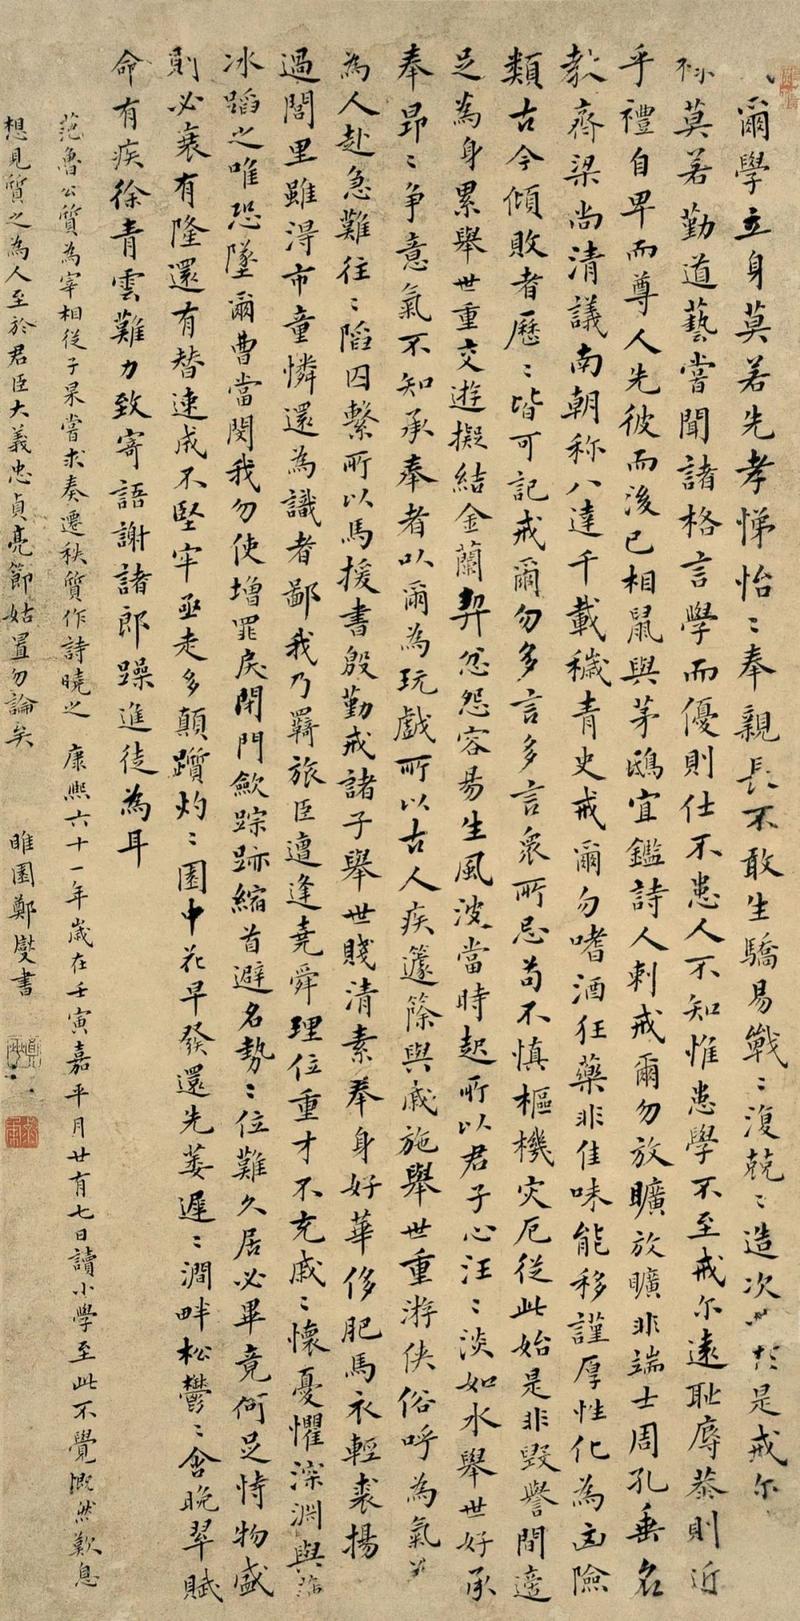 爾學立身莫若先孝悌怡〻奉親長不敢生驕易戰〻復兢〻造次於是戒尔
莫若勤道藝嘗聞諸格言學而優則仕不患人不知惟患學不至戒尔遠恥辱恭則近
乎禮自卑而尊人先彼而後己相鼠與茅鴟宜鑑詩人刺戒爾勿放曠放曠非端士周孔垂名
教齊梁尚清議南朝称八達千載穢青史戒爾勿嗜酒狂藥非佳味能移謹厚性化為凶險
類古今傾敗者歷〻皆可記戒爾勿多言多言衆所忌苟不慎樞機灾厄從此始是非毀譽間適
足為身累舉世重交遊擬結金蘭契忿怨容易生風波當時起所以君子心汪〻淡如水舉世好承
奉昂〻争意氣不知承奉者以爾為玩戲所以古人疾籧篨與戚施舉世重游俠俗呼為氣
為人赴急難往〻陷囚繫所以馬援書殷勤戒諸子舉世賤清素奉身好華侈肥馬衣輕裘揚
過閭里雖淂市童憐還為識者鄙我乃羇旅臣遭逢堯舜理位重才不充戚〻懷憂懼深渊與
冰蹈之唯恐墜爾曹當閔我勿使增罪戾閉門歛踪跡縮首避名勢〻位難久居必畢竟何足恃物盛
則必衰有隆還有替速成不堅牢亟走多顛躓灼〻園中花早發還先萎遲〻澗畔松鬱〻含晚翠賦
命有疾徐青雲難力致寄語謝諸郎躁進徒為耳
范魯公質為宰相從子杲嘗求奏遷秩質作詩曉之 康熙六十一年歲在壬寅嘉平月廿有七日讀小學至此不覺慨然歎息
想見質之為人至於君臣大義忠貞亮節姑置勿論矣 睢園鄭燮書